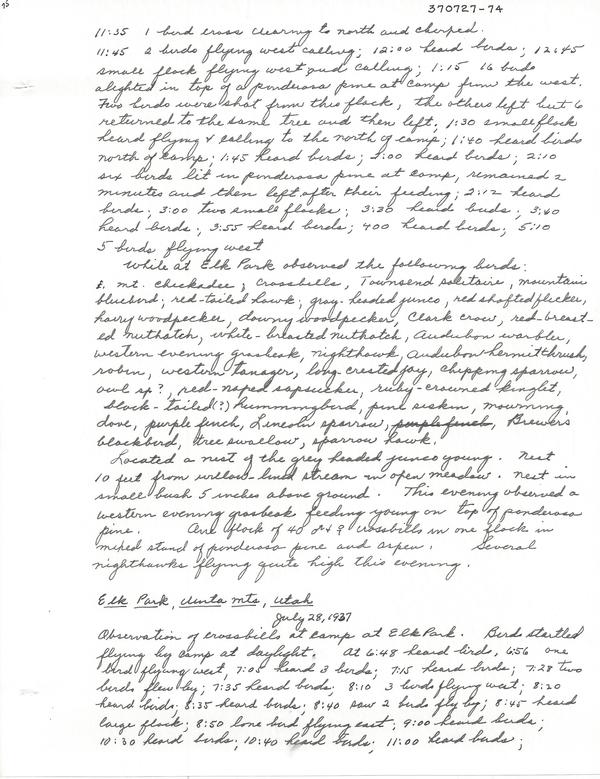 370727-74
11:35 1 bird cross clearing to north and cherped.
11:45 2 birds flying west calling; 12:00 heard birds; 12:45
small flock flying west and calling; 1:15 16 birds
alighted in top of a ponderosa pine at camp from the west.
Two birds were shot from this flock, the others left but 6
returned to the same tree and then left; 1:30 small flock
heard flying & calling to the north of camp; 1:40 heard birds
north of camp; 1:45 heard birds; 2:00 heard birds; 2:10
six birds lit in ponderosa pine at camp, remained 2
minutes and then left after their feeding; 2:12 heard
birds; 3:00 two small flocks; 3:30 heard birds; 3:40
heard birds; 3:55 heard birds; 400 heard birds; 5:10
5 birds flying west
While at Elk Park observed the following birds:
mt. chickadee; crossbills, Townsend solitaire, mountain
bluebird; red-tailed hawk; gray-headed junco, red shafted flicker,
hairy woodpecker, downy woodpecker, Clark crow, red-breast-
ed nuthatch, white-breasted nuthatch, Audubon warbler,
western evening grosbeak, nighthawk, Audubon hermit thrush,
robin, western tanager, long-crested jay, chipping sparrow,
owl sp?, red-naped sapsucker, ruby-crowned kinglet,
black-tailed(?) hummingbird, pine siskin, mourning
dove, purple finch, Lincoln sparrow, purple finch, Brewers
blackbird, tree swallow, sparrow hawk.
Located a nest of the grey headed junco young. Nest
10 feet from willow-lined stream in open meadow. Nest in
small bush 5 inches above ground. This evening observed a
western evening grosbeak feeding young on top of ponderosa
pine. One flock of 40 ♂ & ♀ crossbills in one flock in
mixed stand of ponderosa pine and aspen. Several
nighthawks flying quite high this evening.
Elk Park, Uinta Mts, Utah
July 28, 1937
Observation of crossbills at camp at Elk Park. Birds startled
flying by camp at daylight. At 6:48 heard bird, 6:56 one
bird flying west, 7:05 heard 3 birds; 7:15 heard birds; 7:28 two
birds flew by; 7:35 heard birds; 8:10 3 birds flying west; 8:20
heard birds; 8:35 heard birds; 8:40 saw 2 birds fly by; 8:45 heard
large flock; 8:50 lone bird flying east; 9:00 heard birds;
10:30 heard birds; 10:40 heard birds; 11:00 heard birds;